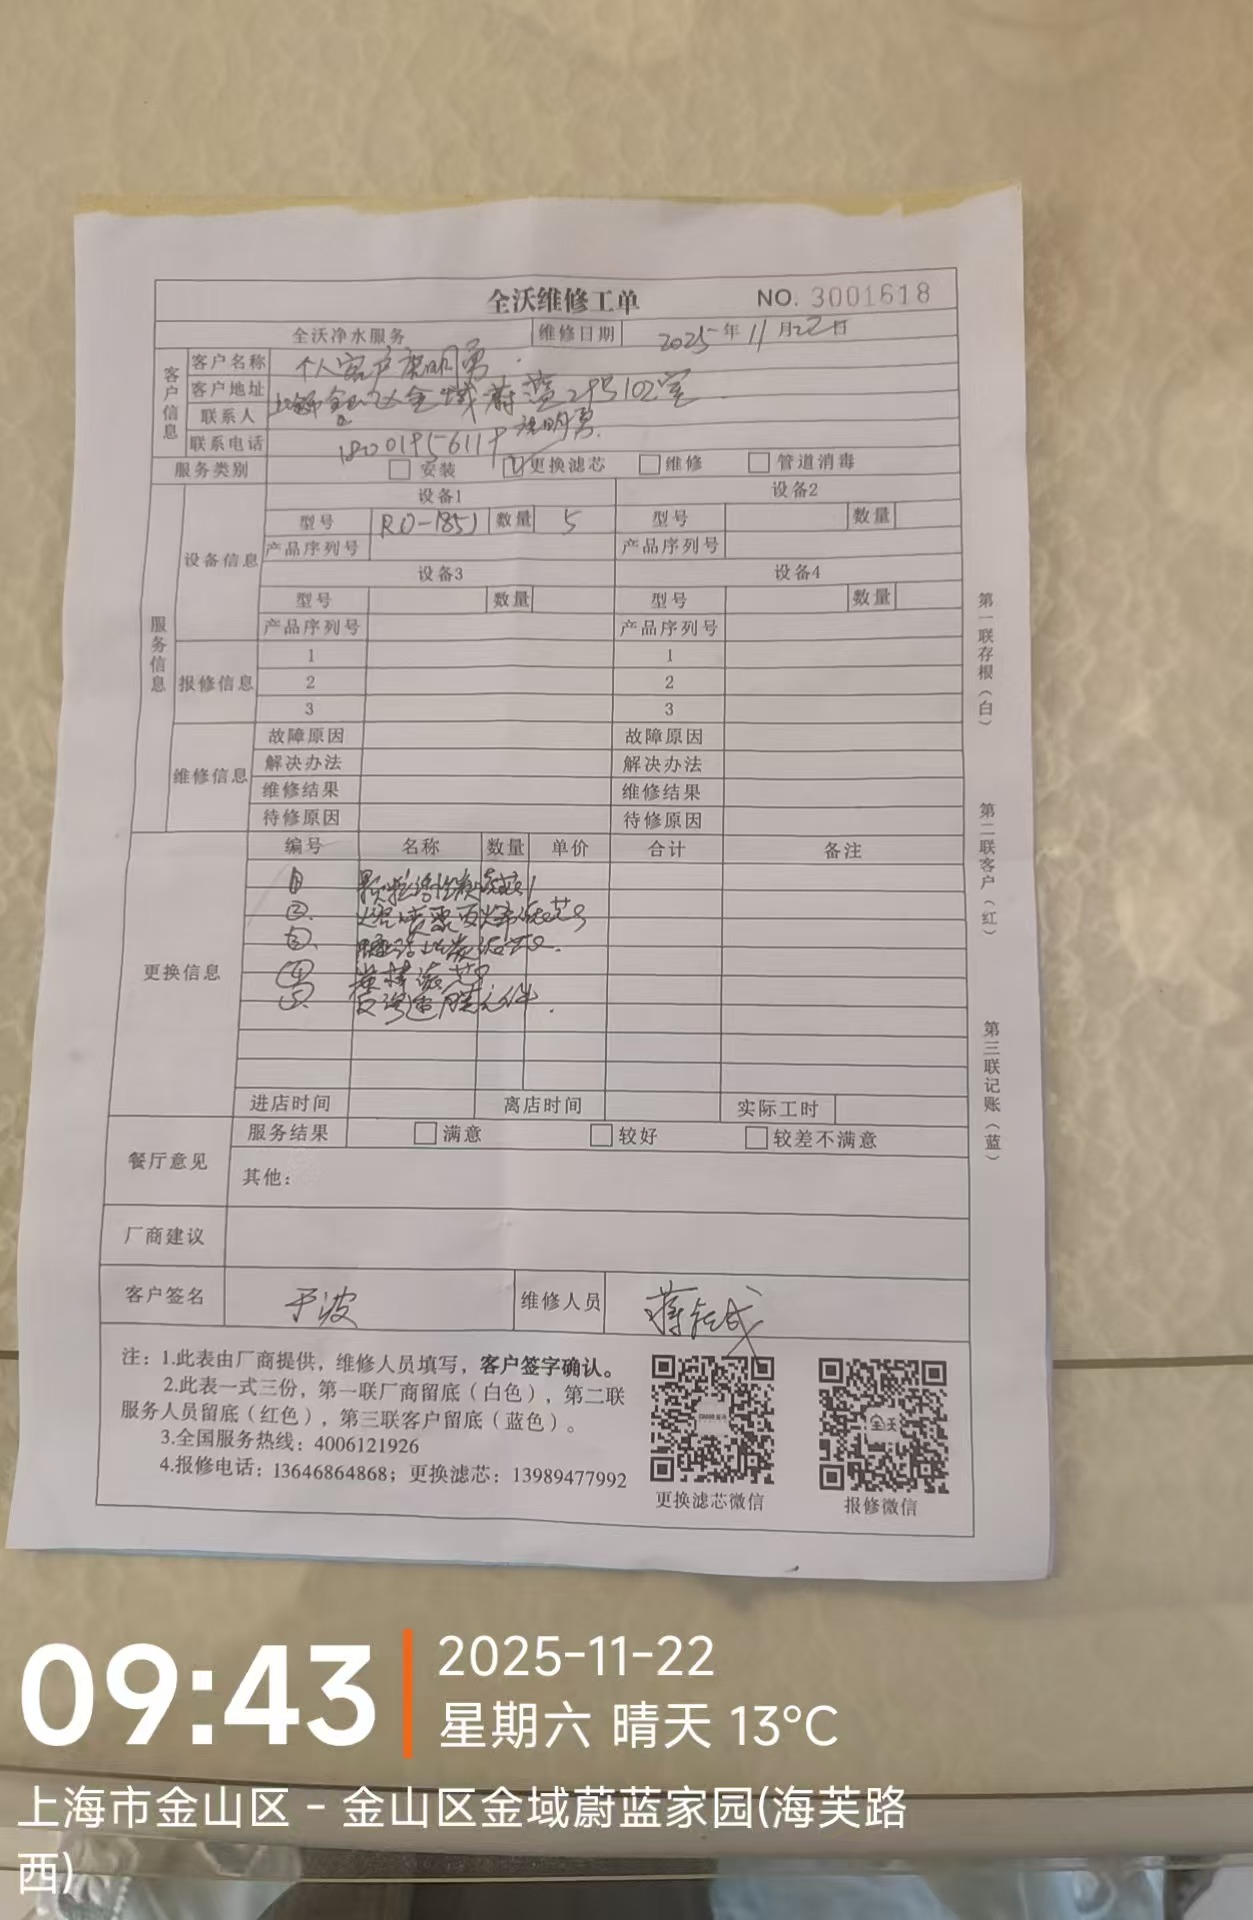 全沃维修工单 NO. 3001618
全沃净水服务 维修日期 2025年11月22日
客户信息
客户名称 个人客户 明勇
客户地址 上海金山区金域蔚蓝 102室
联系人 明勇
联系电话
服务类别 安装 更换滤芯 维修 管道消毒
服务信息
设备信息
设备1 设备2
型号 RO-185J 数量 5 型号 数量
产品序列号 产品序列号
设备3 设备4
型号 数量 型号 数量
产品序列号 产品序列号
报修信息
1 1
2 2
3 3
维修信息
故障原因 故障原因
解决办法 解决办法
维修结果 维修结果
待修原因 待修原因
更换信息
编号 名称 数量 单价 合计 备注
① 颗粒活性炭滤芯
② 熔喷聚丙烯滤芯
③ 活性炭滤芯
④ 滤芯
⑤ 反渗透膜元件
进店时间 离店时间 实际工时
餐厅意见
服务结果 满意 较好 较差不满意
其他：
厂商建议
客户签名 于波 维修人员 蒋 成
注：1.此表由厂商提供，维修人员填写，客户签字确认。
2.此表一式三份，第一联厂商留底（白色），第二联
服务人员留底（红色），第三联客户留底（蓝色）。
3.全国服务热线：4006121926
4.报修电话：13646864868；更换滤芯：13989477992
更换滤芯微信 报修微信
第一联存根（白）
第二联客户（红）
第三联记账（蓝）
09:43
2025-11-22
星期六 晴天 13°C
上海市金山区 - 金山区金域蔚蓝家园(海芙路
西)